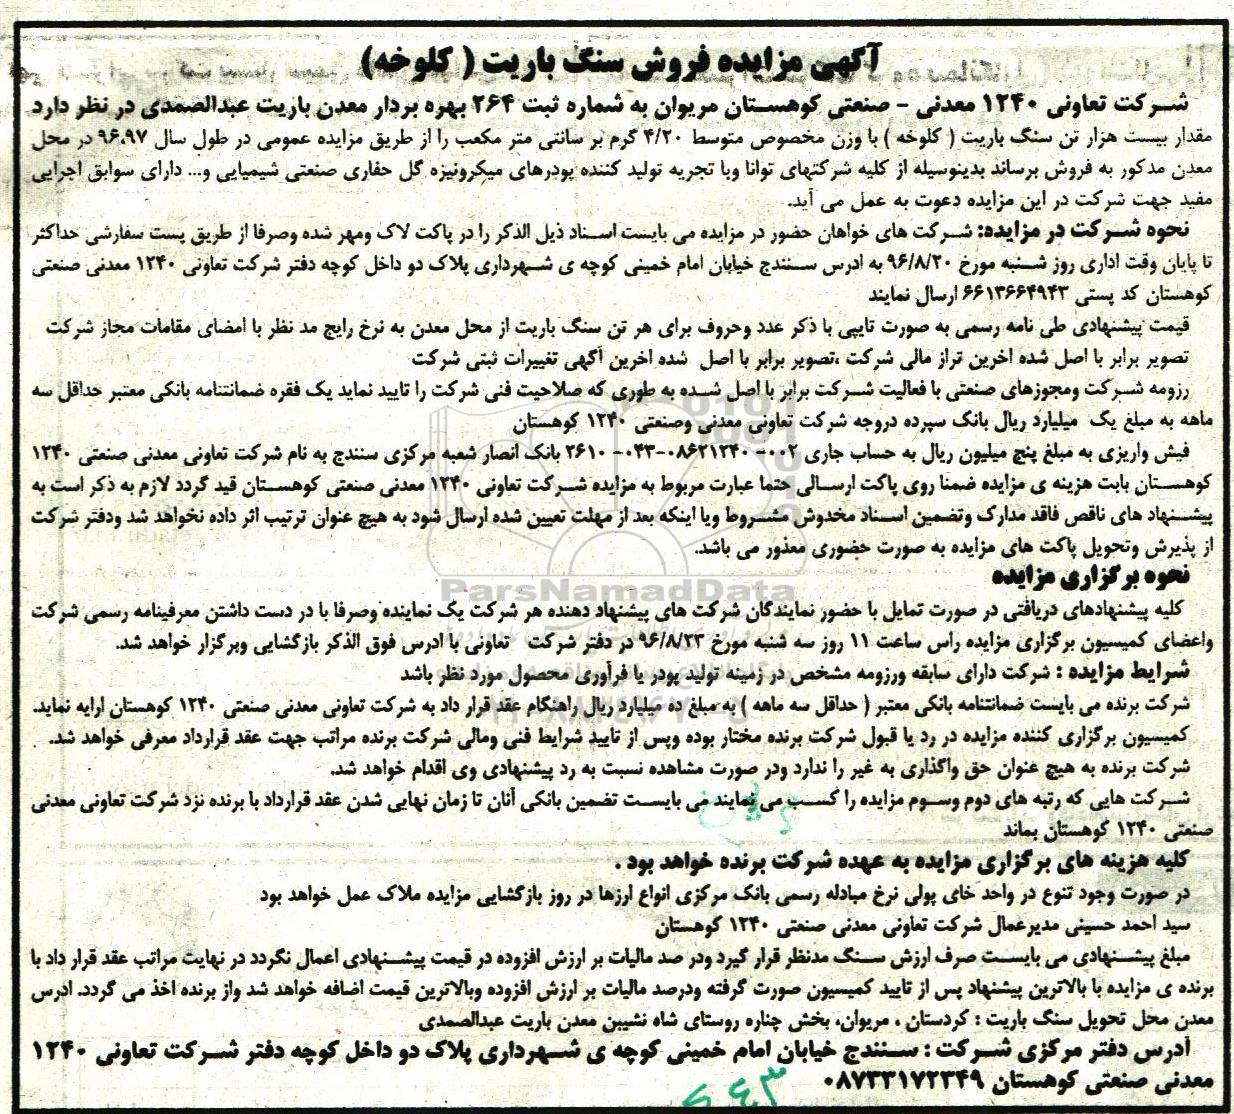 آگهی مزایده فروش سنگ باریت ( کلوخه)
شرکت تعاونی ۱۲۴۰ معدنی - صنعتی کوهستان مریوان به شماره ثبت ۲۶۴ بهره بردار معدن باریت عبدالصمدی در نظر دارد
مقدار بیست هزار تن سنگ باریت ( کلوخه ) با وزن مخصوص متوسط ۴/۲۰ گرم بر سانتی متر مکعب را از طریق مزایده عمومی در طول سال ۹۶،۹۷ در محل
معدن مدکور به فروش برساند بدینوسیله از کلیه شرکتهای توانا وبا تجربه تولید کننده پودرهای میکرونیزه گل حفاری صنعتی شیمیایی و... دارای سوابق اجرایی
مفید جهت شرکت در این مزایده دعوت به عمل می آید.
نحوه شرکت در مزایده: شرکت های خواهان حضور در مزایده می بایست اسناد ذیل الذکر را در پاکت لاک ومهر شده وصرفا از طریق پست سفارشی حداکثر
تا پایان وقت اداری روز شنبه مورخ ۹۶/۸/۲۰ به ادرس سنندج خیابان امام خمینی کوچه ی شهرداری پلاک دو داخل کوچه دفتر شرکت تعاونی ۱۲۴۰ معدنی صنعتی
کوهستان کد پستی ۶۶۱۳۶۶۴۹۴۳ ارسال نمایند
قیمت پیشنهادی طی نامه رسمی به صورت تایپی با ذکر عدد وحروف برای هر تن سنگ باریت از محل معدن به نرخ رایج مد نظر با امضای مقامات مجاز شرکت
تصویر برابر با اصل شده اخرین تراز مالی شرکت ،تصویر برابر با اصل شده اخرین آگهی تغییرات ثبتی شرکت
رزومه شرکت ومجوزهای صنعتی با فعالیت شرکت برابر با اصل شده به طوری که صلاحیت فنی شرکت را تایید نماید یک فقره ضمانتنامه بانکی معتبر حداقل سه
ماهه به مبلغ یک میلیارد ریال بانک سپرده دروجه شرکت تعاونی معدنی وصنعتی ۱۲۴۰ کوهستان
فیش واریزی به مبلغ پنج میلیون ریال به حساب جاری ۰۰۲-۰۸۶۲۱۲۴۰-۰۴۳-۲۶۱۰ بانک انصار شعبه مرکزی سنندج به نام شرکت تعاونی معدنی صنعتی ۱۲۴۰
کوهستان بابت هزینه ی مزایده ضمنا روی پاکت ارسالی حتما عبارت مربوط به مزایده شرکت تعاونی ۱۲۴۰ معدنی صنعتی کوهستان قید گردد لازم به ذکر است به
پیشنهاد های ناقص فاقد مدارک وتضمین اسناد مخدوش مشروط ویا اینکه بعد از مهلت تعیین شده ارسال شود به هیچ عنوان ترتیب اثر داده نخواهد شد ودفتر شرکت
از پذیرش وتحویل پاکت های مزایده به صورت حضوری معذور می باشد.
ParsNamadData
نحوه برگزاری مزایده
کلیه پیشنهادهای دریافتی در صورت تمایل با حضور نمایندگان شرکت های پیشنهاد دهنده هر شرکت یک نماینده وصرفا با در دست داشتن معرفینامه رسمی شرکت
واعضای کمیسیون برگزاری مزایده راس ساعت ۱۱ روز سه شنبه مورخ ۹۶/۸/۲۳ در دفتر شرکت تعاونی با ادرس فوق الذکر بازگشایی وبرگزار خواهد شد.
شرایط مزایده : شرکت دارای سابقه ورزومه مشخص در زمینه تولید پودر یا فرآوری محصول مورد نظر باشد
شرکت برنده می بایست ضمانتنامه بانکی معتبر ( حداقل سه ماهه ) به مبلغ ده میلیارد ریال راهنگام عقد قرار داد به شرکت تعاونی معدنی صنعتی ۱۲۴۰ کوهستان ارایه نماید.
کمیسیون برگزاری کننده مزایده در رد یا قبول شرکت برنده مختار بوده وپس از تایید شرایط فنی ومالی شرکت برنده مراتب جهت عقد قرارداد معرفی خواهد شد.
شرکت برنده به هیچ عنوان حق واگذاری به غیر را ندارد ودر صورت مشاهده نسبت به رد پیشنهادی وی اقدام خواهد شد.
شرکت هایی که رتبه های دوم وسوم مزایده را کسب می نمایند می بایست تضمین بانکی آنان تا زمان نهایی شدن عقد قرارداد با برنده نزد شرکت تعاونی معدنی
صنعتی ۱۲۴۰ کوهستان بماند
کلیه هزینه های برگزاری مزایده به عهده شرکت برنده خواهد بود .
در صورت وجود تنوع در واحد خای پولی نرخ مبادله رسمی بانک مرکزی انواع ارزها در روز بازگشایی مزایده ملاک عمل خواهد بود
سید احمد حسینی مدیرعمال شرکت تعاونی معدنی صنعتی ۱۲۴۰ کوهستان
مبلغ پیشنهادی می بایست صرف ارزش سنگ مدنظر قرار گیرد ودر صد مالیات بر ارزش افزوده در قیمت پیشنهادی اعمال نگردد در نهایت مراتب عقد قرار داد با
برنده ی مزایده با بالاترین پیشنهاد پس از تایید کمیسیون صورت گرفته ودرصد مالیات بر ارزش افزوده وبالاترین قیمت اضافه خواهد شد واز برنده اخذ می گردد. ادرس
معدن محل تحویل سنگ باریت : کردستان ، مریوان، بخش چناره روستای شاه نشین معدن باریت عبدالصمدی
آدرس دفتر مرکزی شرکت : سنندج خیابان امام خمینی کوچه ی شهرداری پلاک دو داخل کوچه دفتر شرکت تعاونی ۱۲۴۰
معدنی صنعتی کوهستان ۰۸۷۳۳۱۷۲۳۴۹